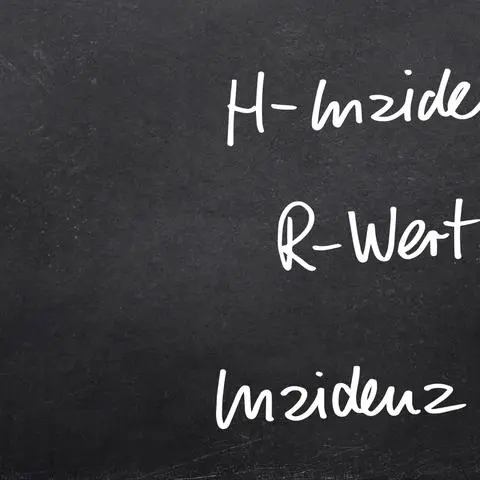 H-Inzide
R-Wert
Inzidenz